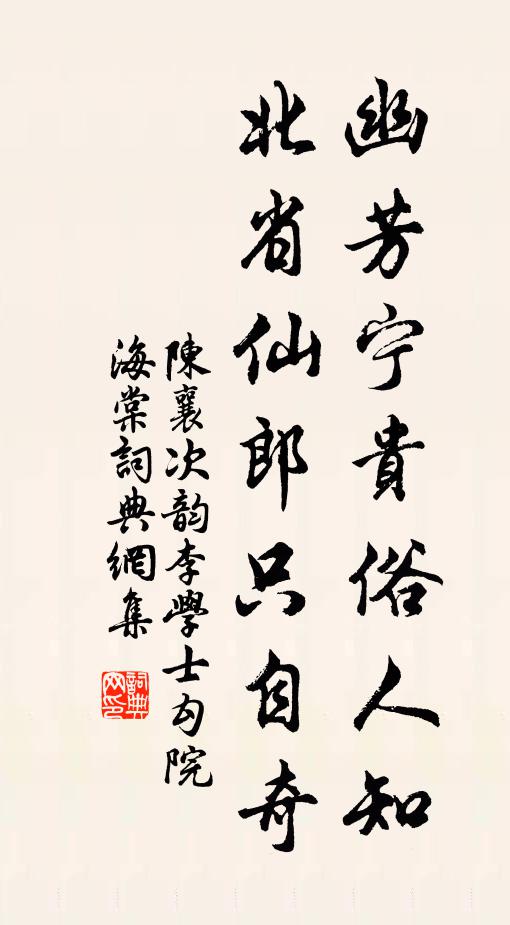 幽芳宁貴俗人知
北省仙郎只自奇
陳襄次韵李學士勾院
海棠詞典網集
詞典
网印